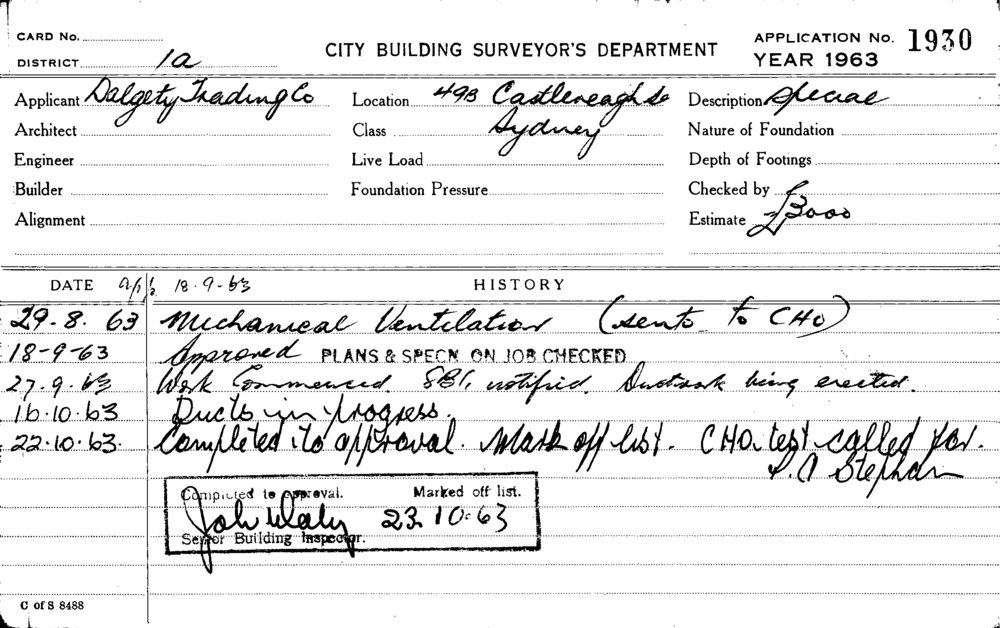 CARD No.
DISTRICT 1a
CITY BUILDING SURVEYOR'S DEPARTMENT
APPLICATION No. 1930
YEAR 1963
Applicant Dalgety Trading Co
Location 49B Castlereagh St
Description Special
Architect
Class Sydney
Nature of Foundation
Engineer
Live Load
Depth of Footings
Builder
Foundation Pressure
Checked by
Alignment
Estimate £3000
DATE 18-9-63 HISTORY
29.8.63 Mechanical Ventilation (sent to CHO)
18-9-63 Approved PLANS & SPECN. ON JOB CHECKED
27.9.63 Work Commenced. SBI, notified. Ductwork being erected.
16.10.63 Ducts in progress.
22.10.63. Completed to approval. Mark off list. CHO. test called for.
Stephan
Completed to approval. Marked off list.
John Daly 23.10.63
Senior Building Inspector.
C of S 8488